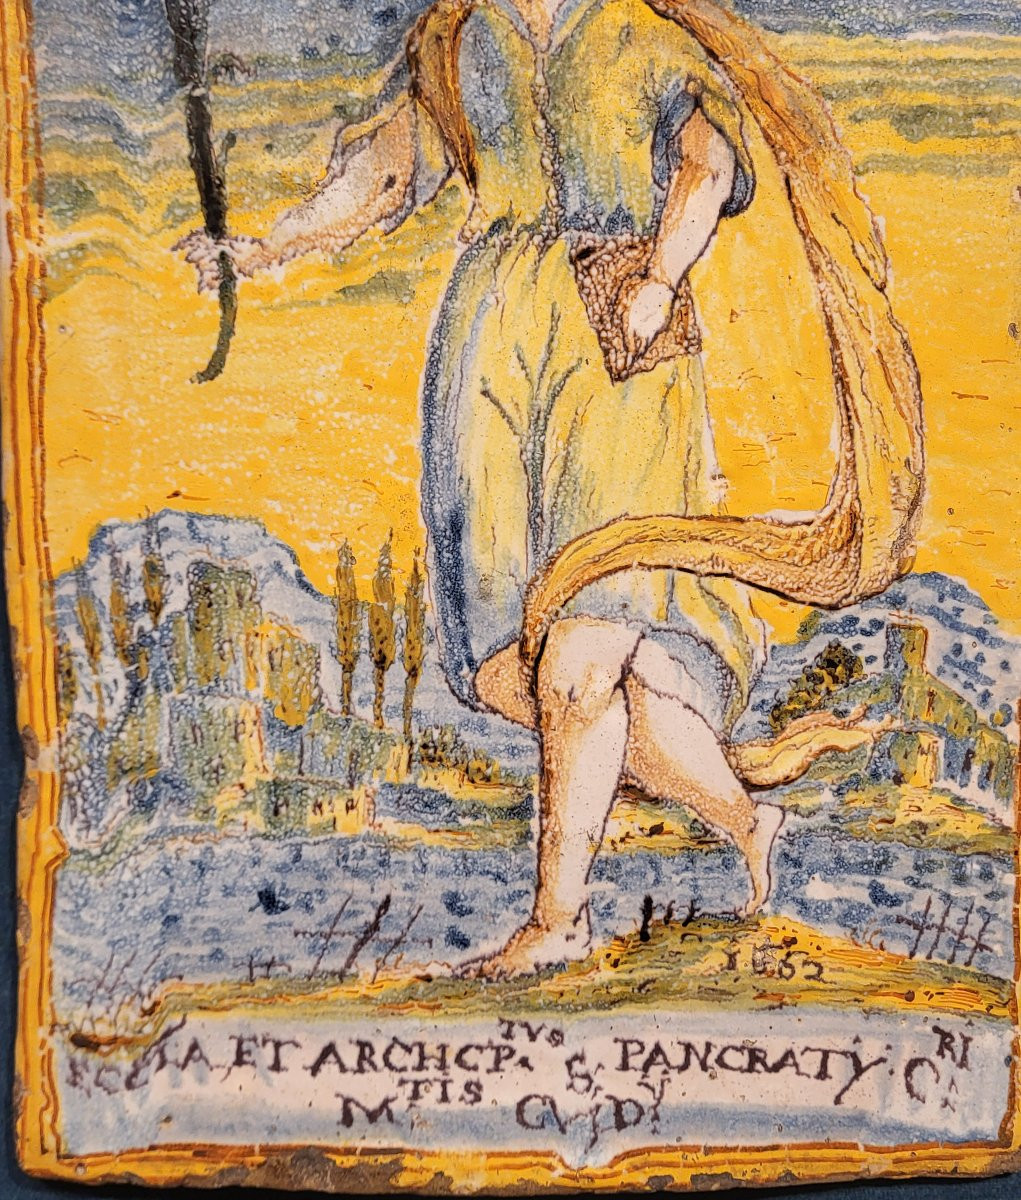 1662
ECC.IA ET ARCHCP.TVS S. PANCRATY. C.RI
M.TIS CVIDI